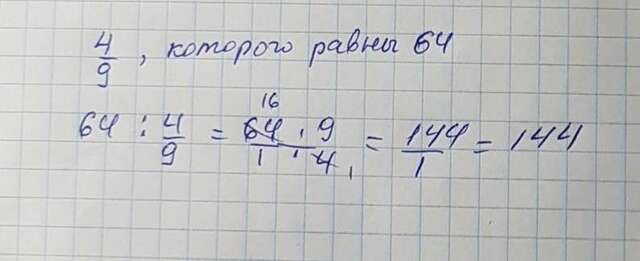 4/9, которого равны 64
64 : 4/9 = 64 · 9 / 1 · 4 = 144/1 = 144
16
1